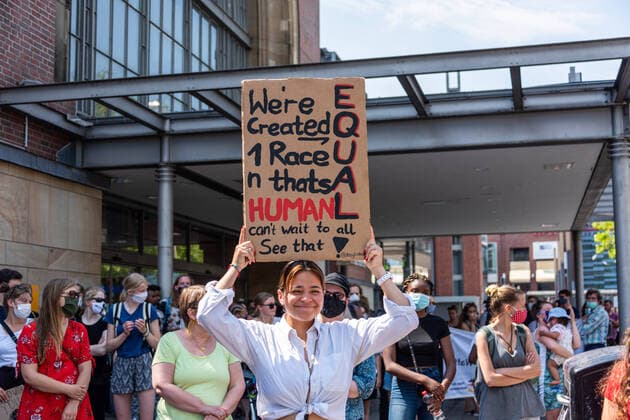 We're
Created →
1 Race
n thats
HUMAN
can't wait to all
See that
EQUAL!